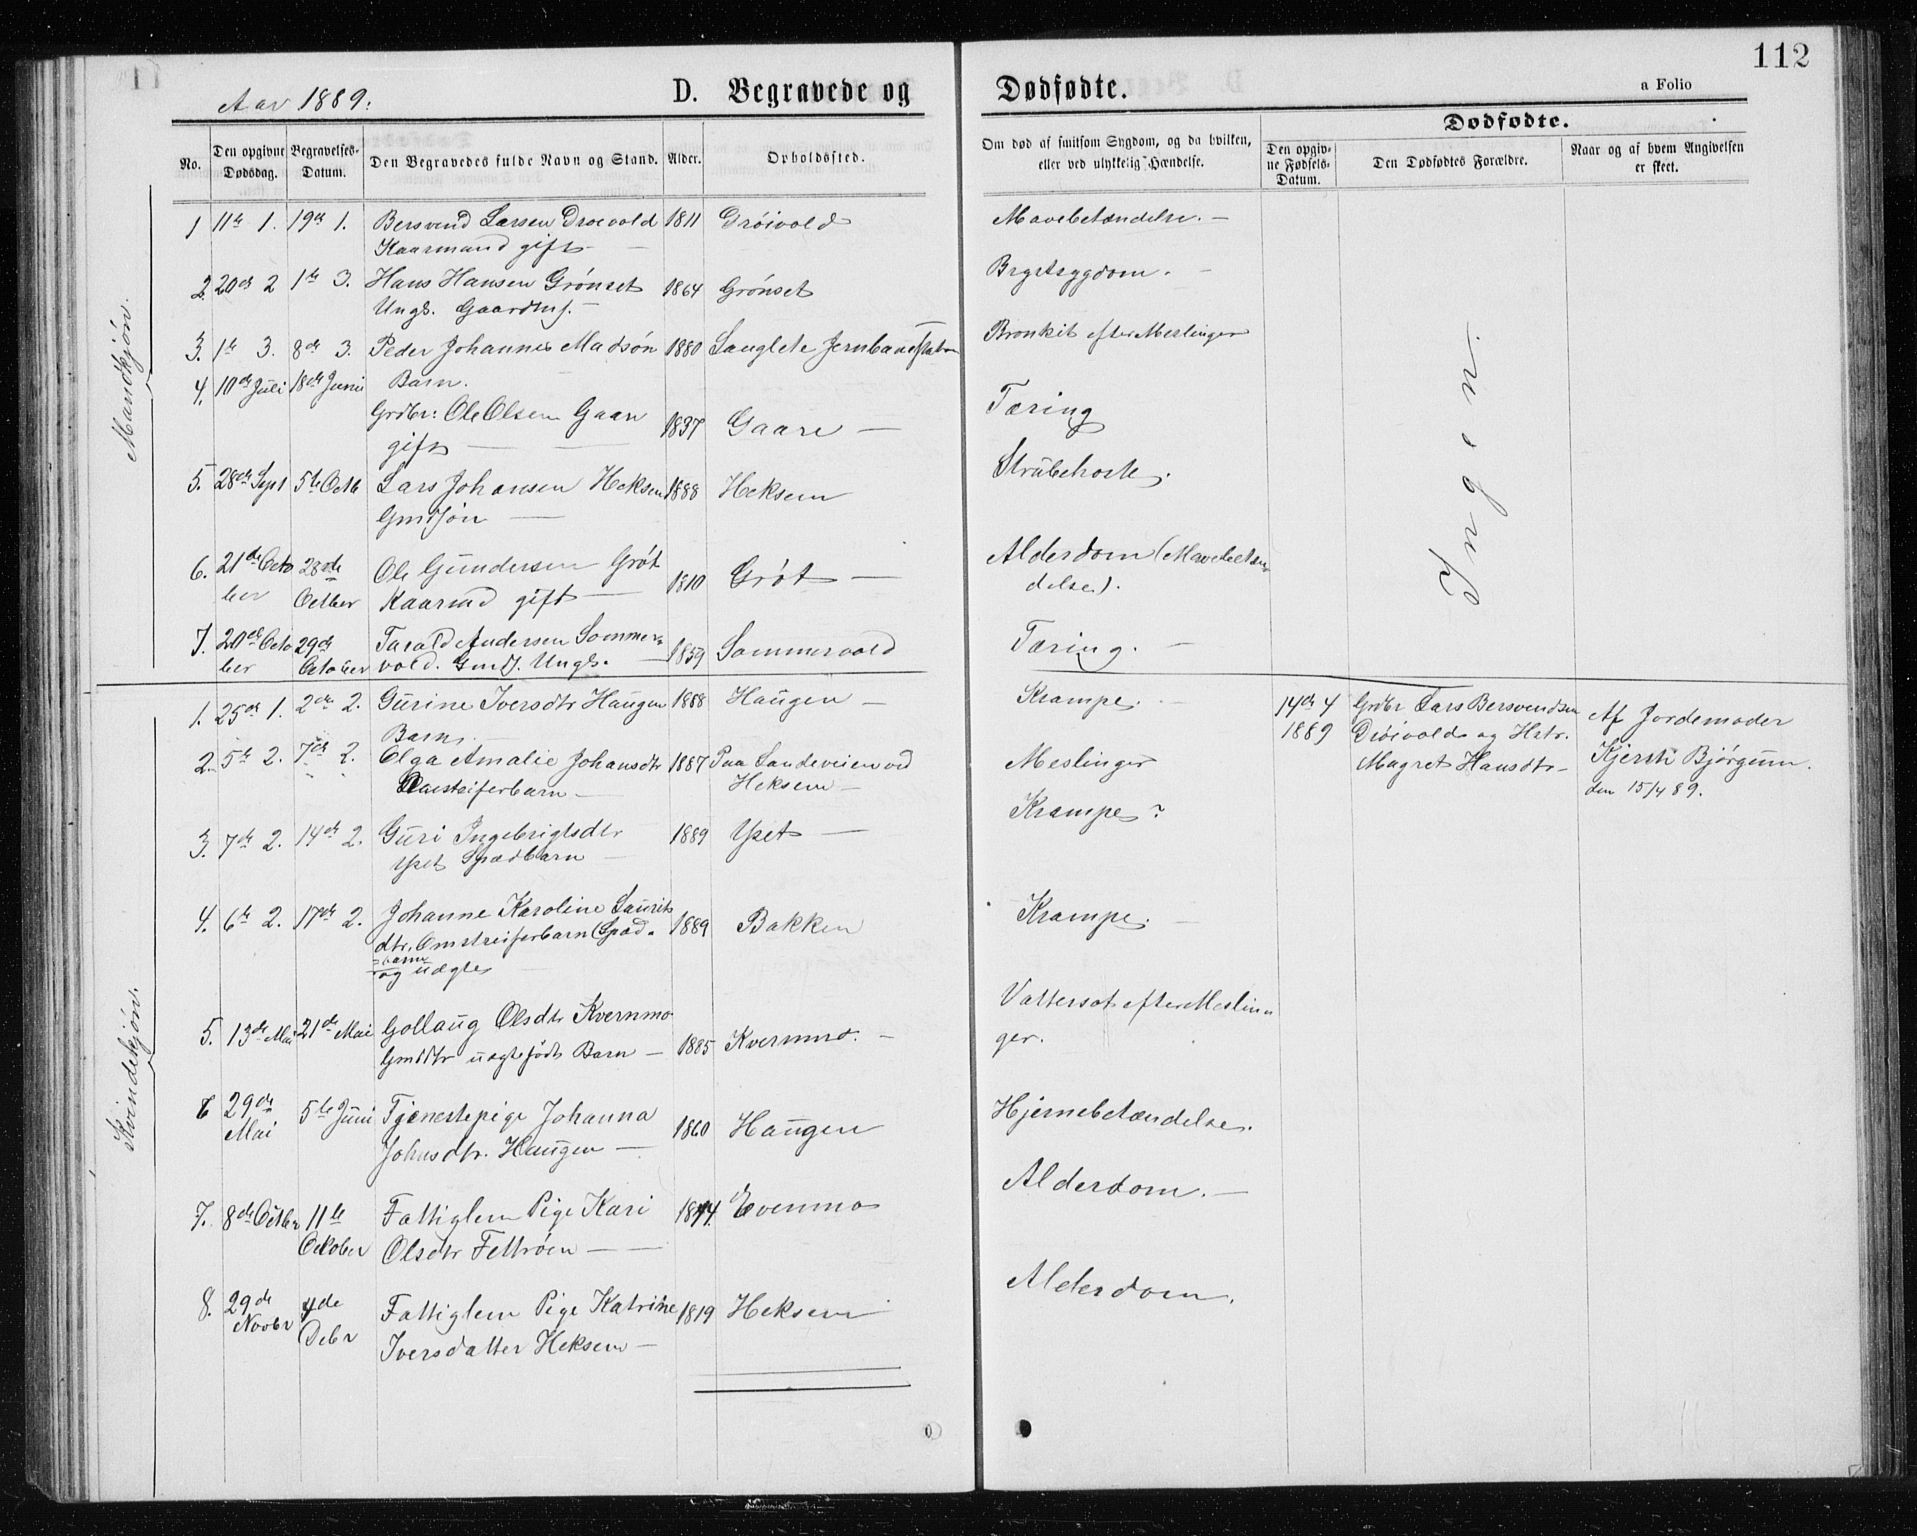 112
Aar 1889.
D. Begravede og Dødfødte.
a Folio
No.
Den opgivne Dødsdag.
Begravelses-Datum.
Den Begravedes fulde Navn og Stand.
Alder.
Opholdssted.
Om død af smitsom Sygdom, og da hvilken,
eller ved ulykkelig Hændelse.
Dødfødte.
Den opgiv-
ne Fødsels-
Datum.
Den Dødfødtes Forældre.
Naar og af hvem Angivelsen
er skeet.
Mandkjøn.
1 11te 1. 19de 1. Bersvend Larsen Droivold 1811 Grøivold Mavebetændelse. —
Kaarmand gift —
2. 20de 2 1te 3. Hans Hansen Grønset 1864 Grønset Brystsygdom. —
Ungk. Gaardmf. —
3. 1te 3. 8de 3. Peder Johannes Madsøn 1880 Langlete Jernbanestation Bronkit efter Meslinger
Barn.
4. 10de Juli 18de Juni
Grdbr: Ole Olsen Gaare 1837 Gaare — Tæring
gift —
5. 28de Sept 5te Octb Lars Johansen Heksem 1888 Heksem Strubehoste.
Gmdsøn —
6. 21de Octo 28de Ole Gundersen Grøt 1810 Grøt — Alderdom (Mavebetæn-
ber Octber Kaarmd gift — delse).
7. 20de Octo 29de Tarald Andersen Sommer- 1859 Sommervold Tæring. —
ber October vold. Gmdf. Ungk. —
Ingen.
Kvindekjøn.
1. 25de 1. 2den 2. Gurine Iversdtr Haugen 1888 Haugen — Krampe. —
Barn. —
14de 4 Grdbr Lars Bersvendsen Af Jordemoder
1889 Drøivold og Hstr. Kjersti Bjørgum.
Magret Hansdtr — den 15/4 89.
2. 5te 2. 7de 2. Olga Amalie Johansdtr 1887 Paa Landeveien ved Meslinger
Omstreiferbarn — Heksem —
3. 7de 2. 14de 2. Guri Ingebrigtsdtr 1889 Yset — Krampe?
Yset Spædbarn —
4. 6te 2. 17de 2. Johanne Karoline Laurits 1889 Bakken Krampe. —
dtr. Omstreiferbarn (Spæd-
barn
og uægte
5. 13de Mai 21de Mai Gollaug Olsdtr Kvernmo 1885 Kvernmo. — Vattersot efter Meslin-
Gmddtr uægtefødt Barn — ger.
6 29de 5te Juni Tjenestepige Johanna 1860 Haugen Hjernebetændelse.
Mai Johnsdtr. Haugen —
7. 8de Octbr 11te Fattiglem Pige Kari Evenmo Alderdom. —
October Olsdtr —
8. 29de 4de Fattiglem Pige Katrine 1819 Heksem Alderdom.
Novbr Debr Iversdatter Heksem —